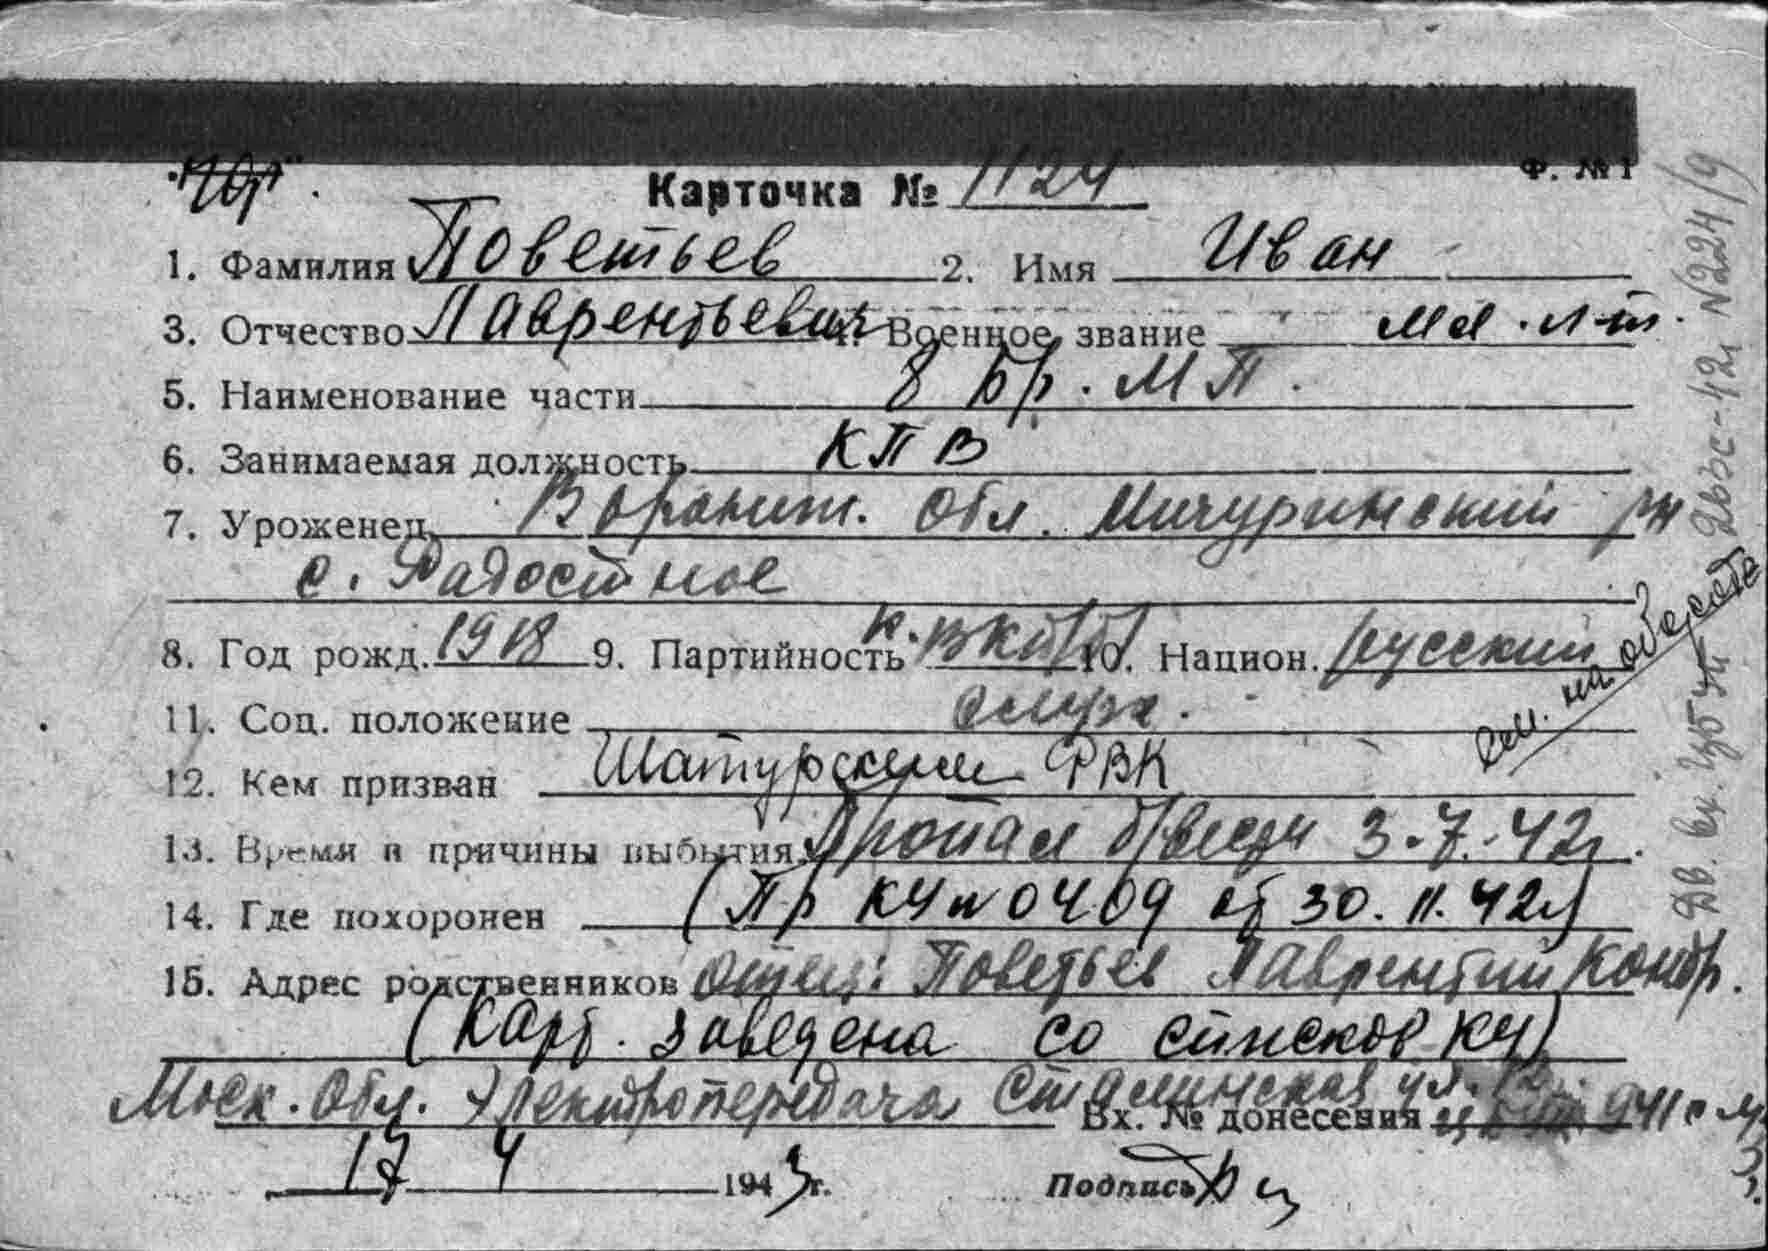 Ф. № 1
Карточка № 1124
1. Фамилия Поветьев 2. Имя Иван
3. Отчество Лаврентьевич 4. Военное звание мл. л-т.
5. Наименование части 8 Бр. МП.
6. Занимаемая должность КПВ
7. Уроженец Воронеж. обл. Мичуринский рн
с. Радостное
8. Год рожд. 1918 9. Партийность к. ВКП(б) 10. Национ. русский
11. Соц. положение служ.
12. Кем призван Шатурским РВК
13. Время и причины выбытия Пропал б/вести 3.7.42г.
14. Где похоронен (Пр КЧ № 0409 от 30.11.42г)
15. Адрес родственников отец: Поветьев Лаврентий Кондр.
(Карт. заведена со списков КЧ)
Моск. обл. Электропередача Сталинская ул. 12
Вх. № донесения 941с
17 4 1943 г. Подпись
см. на обороте
Дв. вх.